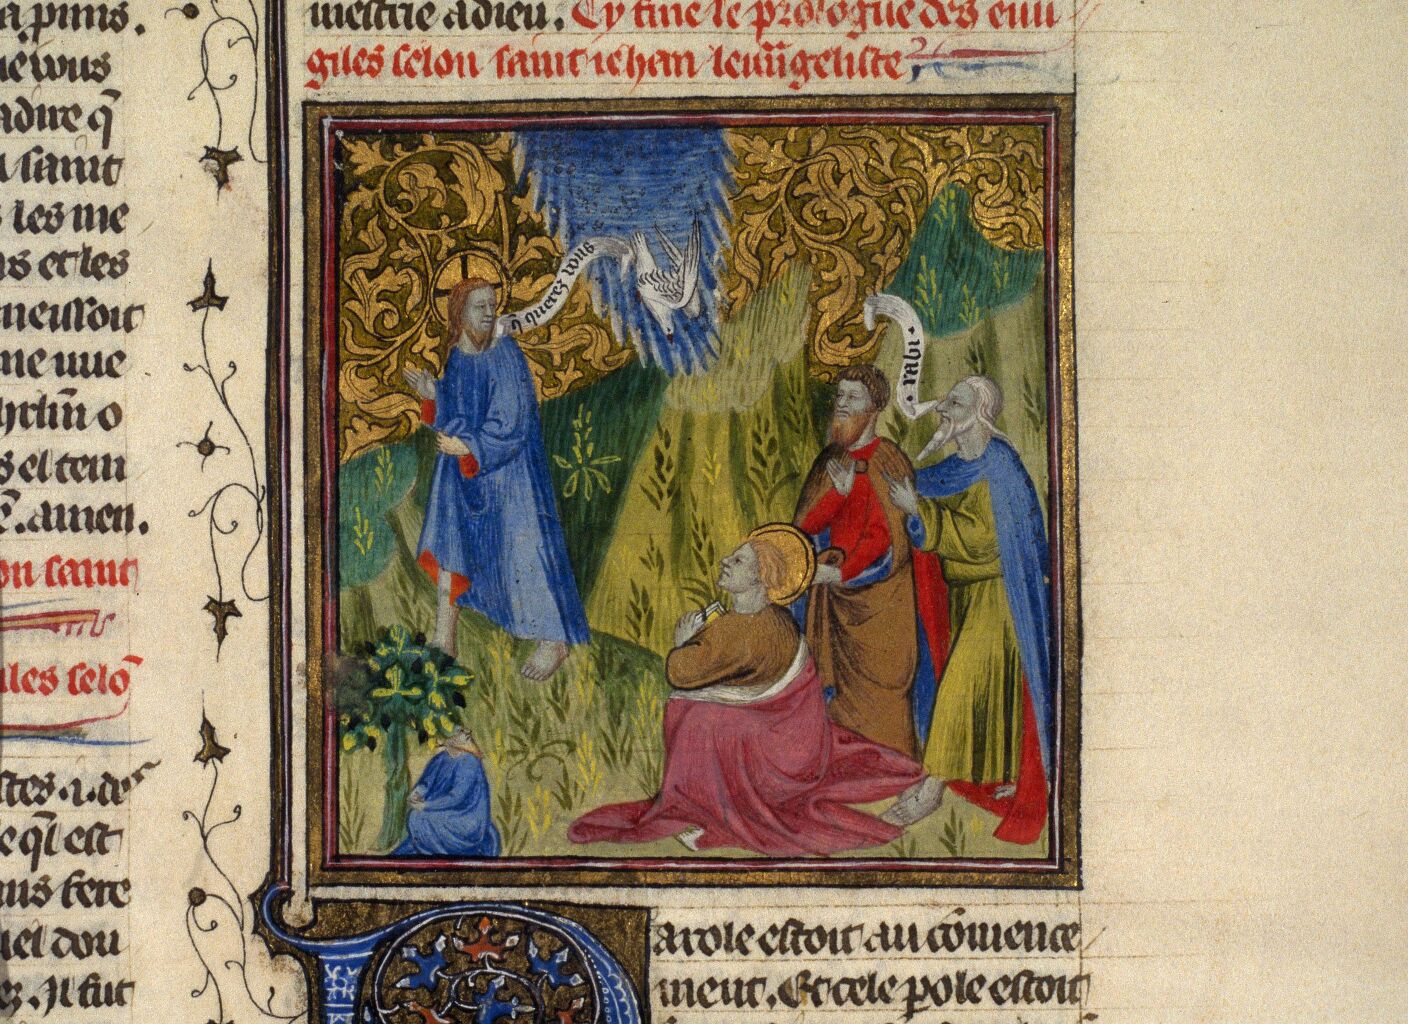 apmis.
ne vous
adire q̃
saint
les me
us et les
neissoit
me uue
hrl̃m o
s el tem
ẽ. amen.
on saint
iles selõ
le ql̃ est
uus fere
iel dou
ez. Il fut
mestrie adieu. Cy fine le prologue des euu
giles selon saint iehan leuũgeliste
q̃ querez vous
rabi
arole estoit au cõmence
ment. Et cele pole estoit